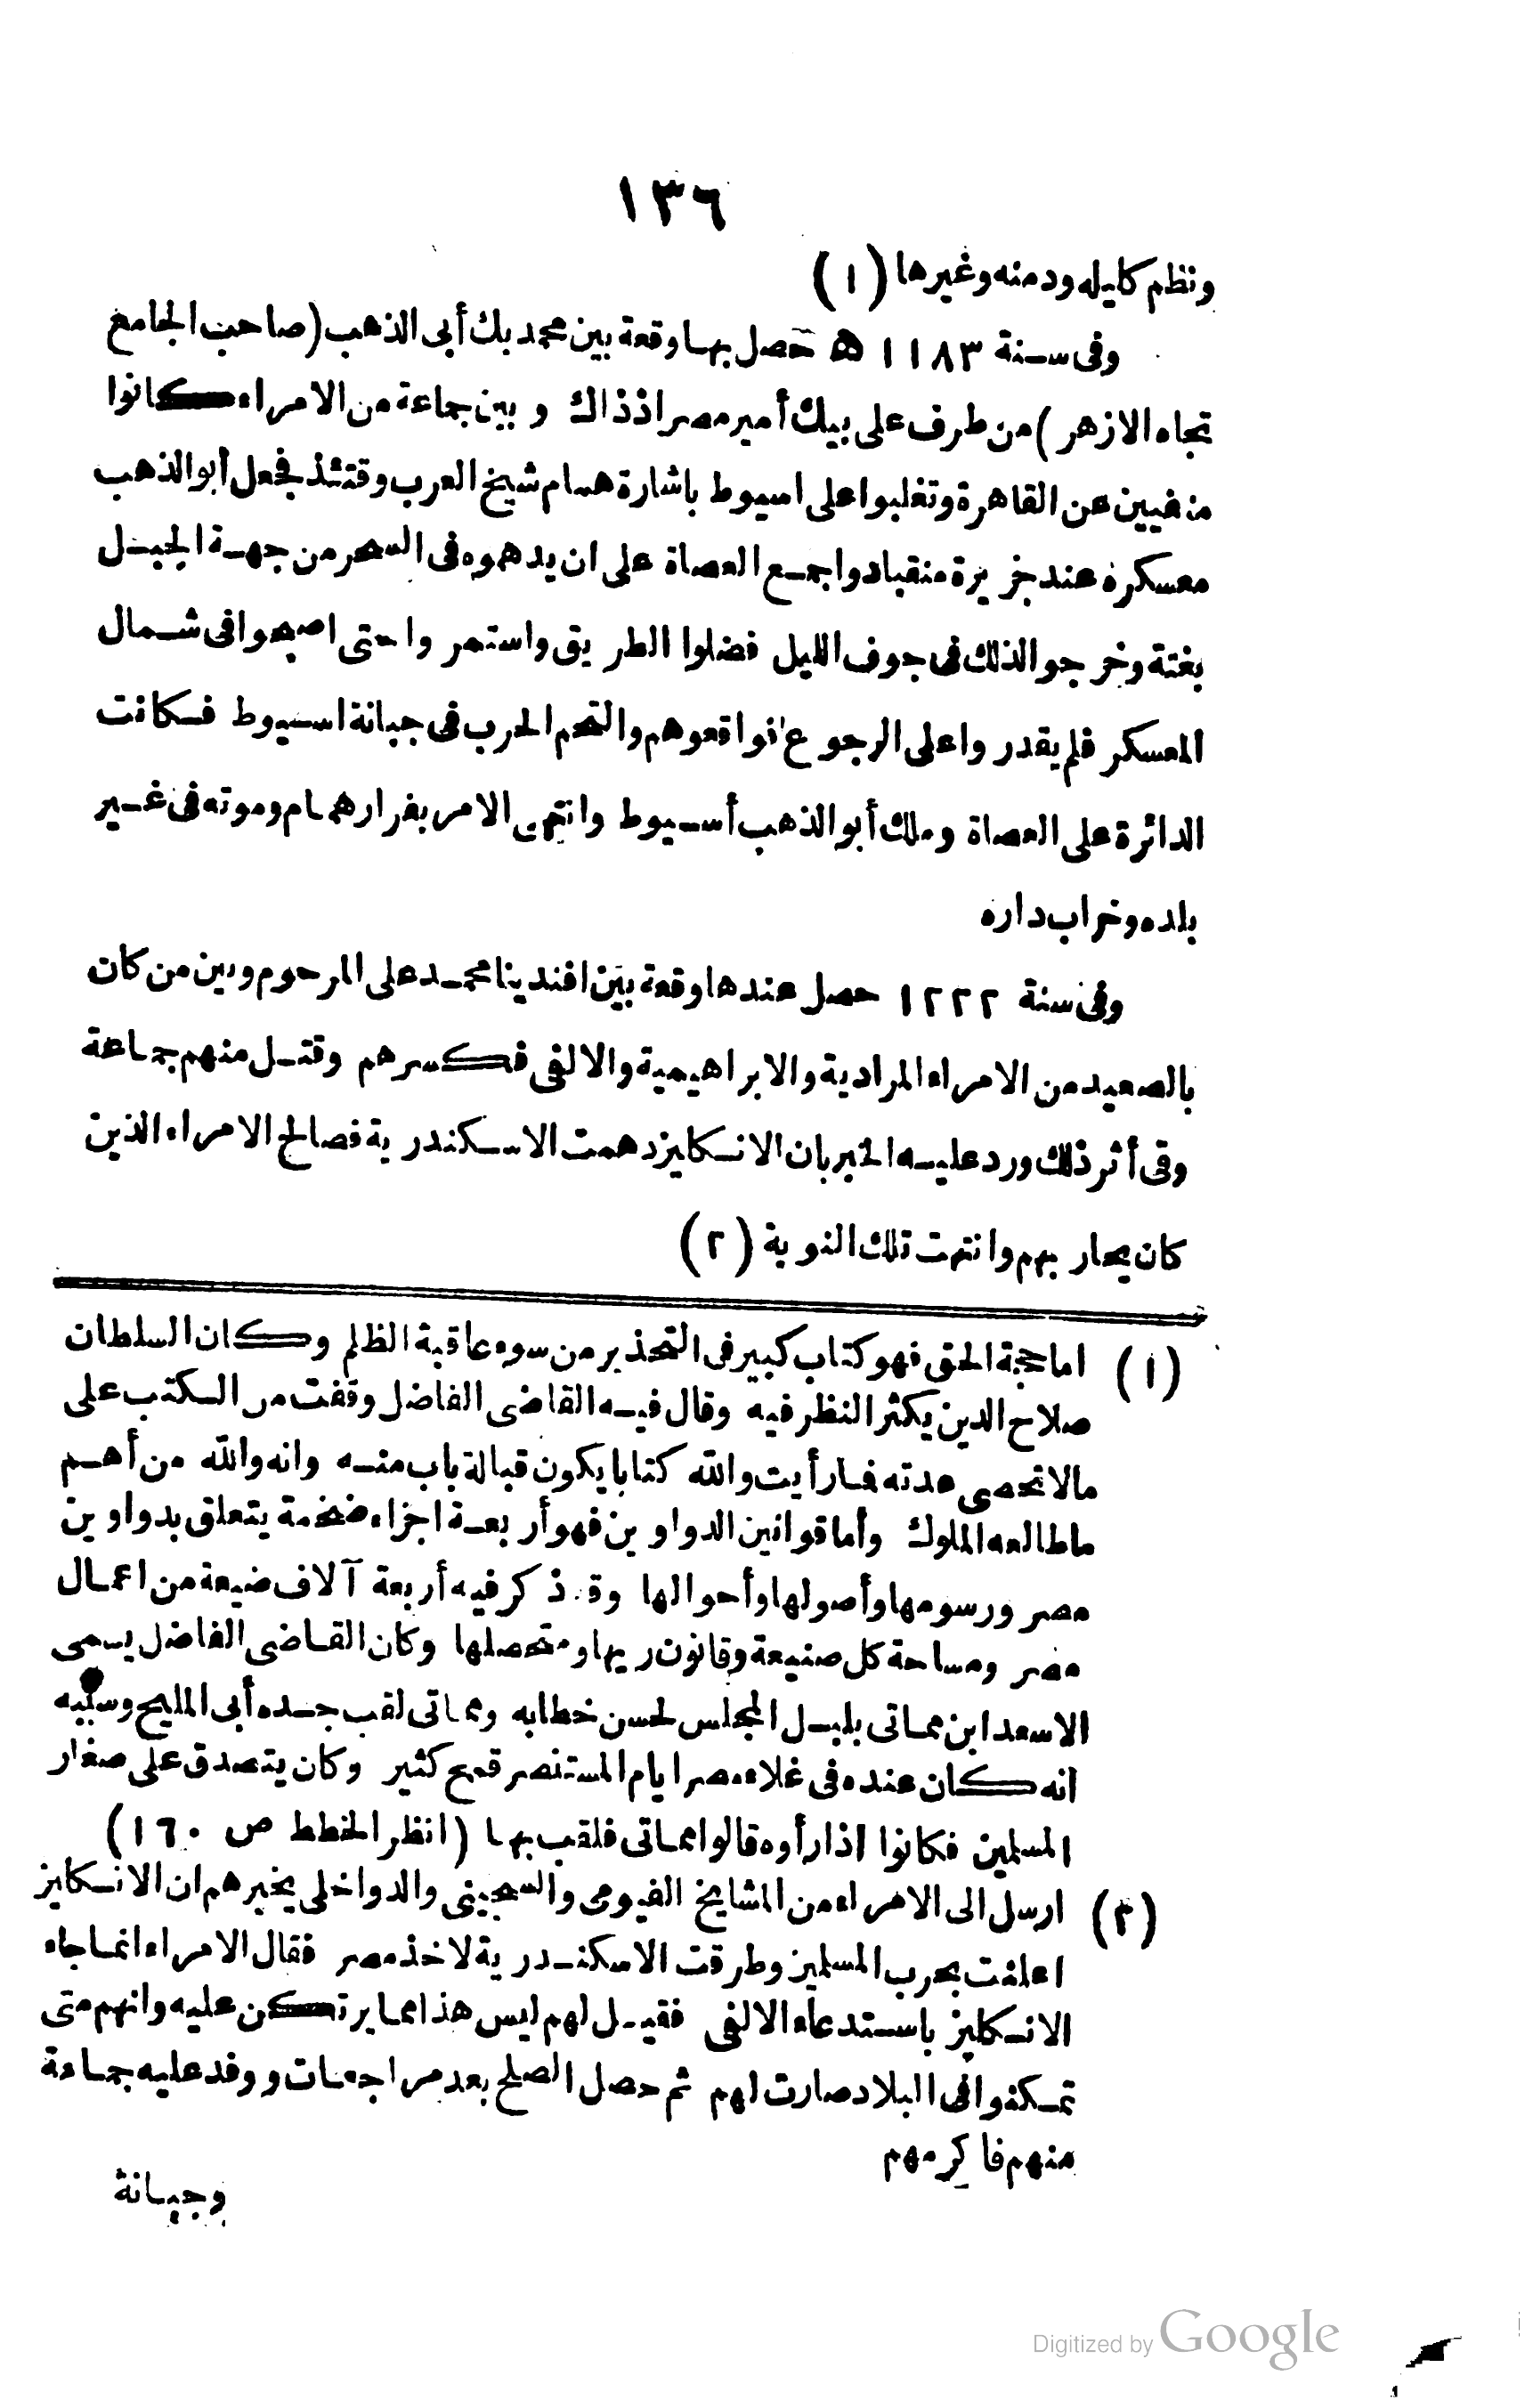 ١٣٦
ونظم كليله ودمنه وغيرها (١)
وفى سنة ١١٨٣ ه حصل بها وقعة بين محمد بك أبى الذهب (صاحب الجامع
تجاه الازهر) من طرف على بيك أمير مصر اذذاك و بين جماعة من الامراء كانوا
منفيين عن القاهرة وتغلبوا على اسيوط باشارة همام شيخ العرب وقتئذ فجعل أبو الذهب
معسكره عند جزيرة منقباد واجمع العصاة على ان يدهموه فى السحر من جهة الجبل
بغتة وخرجوا لذلك فى جوف الليل فضلوا الطريق واستمروا حتى اصبحوا فى شمال
المعسكر فلم يقدروا على الرجوع فواقعوهم والتحم الحرب فى جبانة اسيوط فكانت
الدائرة على العصاة وملك أبو الذهب أسيوط وانتهى الامر بفرار همام وموته فى غير
بلده وخراب داره
وفى سنة ١٢٢٢ حصل عندها وقعة بين افندينا محمد على المرحوم وبين من كان
بالصعيد من الامراء المرادية والابراهيمية والالفى فكسرهم وقتل منهم جماعة
وفى أثر ذلك ورد عليه الخبر بان الانكليز دهمت الاسكندرية فصالح الامراء الذين
كان يحاربهم وانتهت تلك النوبة (٢)
(١) اما حجة الحق فهو كتاب كبير فى التحذير من سوء عاقبة الظلم وكان السلطان
صلاح الدين يكثر النظر فيه وقال فيه القاضى الفاضل وقفت من الكتب على
مالا تحصى عدته فما رأيت والله كتابا يكون قبالة باب منه وانه والله من أهم
ما طالعه الملوك وأما قوانين الدواوين فهو أربعة اجزاء ضخمة يتعلق بدواوين
مصر ورسومها وأصولها وأحوالها وقد ذكر فيه أربعة آلاف ضيعة من اعمال
مصر ومساحة كل ضيعة وقانون ريها ومتحصلها وكان القاضى الفاضل يسمى
الاسعد ابن مماتى بلبل المجلس لحسن خطابه ومماتى لقب جده أبى المليح وسببه
انه كان عنده فى غلاء مصر ايام المستنصر قمح كثير وكان يتصدق على صغار
المسلمين فكانوا اذا رأوه قالوا مماتى فلقب بها (انظر الخطط ص ١٦٠)
(٢) ارسل الى الامراء من المشايخ الفيومى والسجينى والدواخلى يخبرهم ان الانكليز
اعلنت بحرب المسلمين وطرقت الاسكندرية لاخذ مصر فقال الامراء انما جاء
الانكليز باستدعاء الالفى فقيل لهم ليس هذا مما يرتكن عليه وانهم متى
تمكنوا فى البلاد صارت لهم ثم حصل الصلح بعد مراجعات ووفد عليه جماعة
منهم فاكرمهم
وجبانة
Digitized by Google